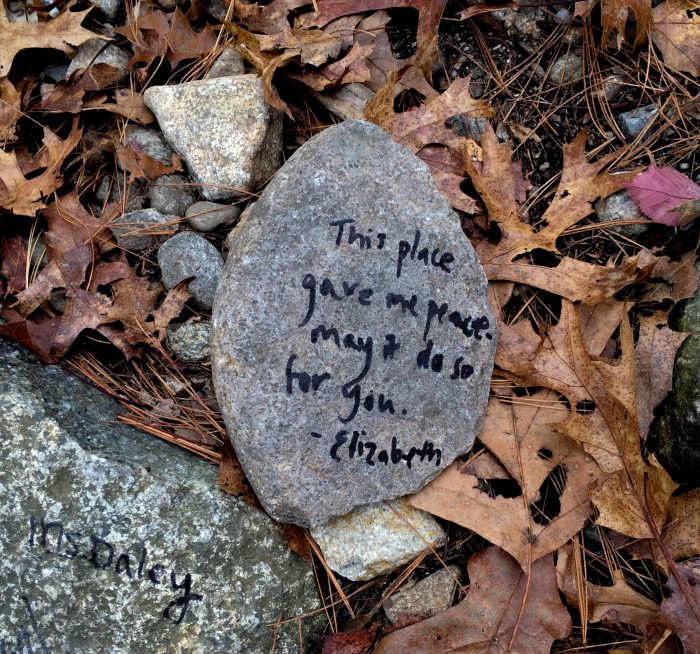 This place
gave me peace.
may it do so
for you.
- Elizabeth
Ms. Daley